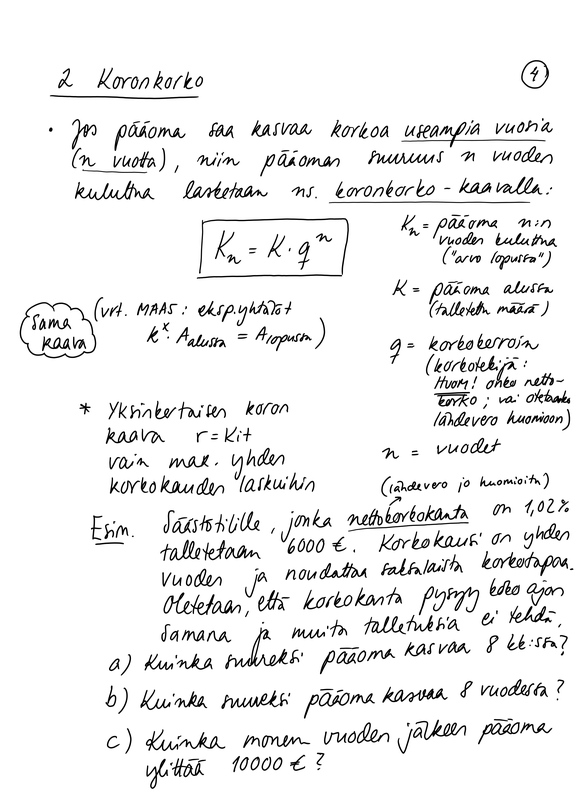 2 Koronkorko
4
• Jos pääoma saa kasvaa korkoa useampia vuosia
(n vuotta), niin pääoman suuruus n vuoden
kuluttua lasketaan ns. koronkorko-kaavalla:
Kn = K · q^n
Kn = pääoma n:n
vuoden kuluttua
("arvo lopussa")
K = pääoma alussa
(talletettu määrä)
q = korkokerroin
(korkotekijä:
HUOM! onko netto-
korko; vai otetaanko
lähdevero huomioon)
n = vuodet
sama
kaava
(vrt. MAA8: eksp.yhtälöt
k^x · Aalussa = Alopussa)
* Yksinkertaisen koron
kaava r = kit
vain max. yhden
korkokauden laskuihin
(lähdevero jo huomioitu)
Esim. Säästötilille, jonka nettokorkokanta on 1,02%
talletetaan 6000 €. Korkokausi on yhden
vuoden ja noudattaa saksalaista korkotapaa.
Oletetaan, että korkokanta pysyy koko ajan
samana ja muita talletuksia ei tehdä.
a) Kuinka suureksi pääoma kasvaa 8 kk:ssa?
b) Kuinka suureksi pääoma kasvaa 8 vuodessa?
c) Kuinka monen vuoden jälkeen pääoma
ylittää 10000 €?